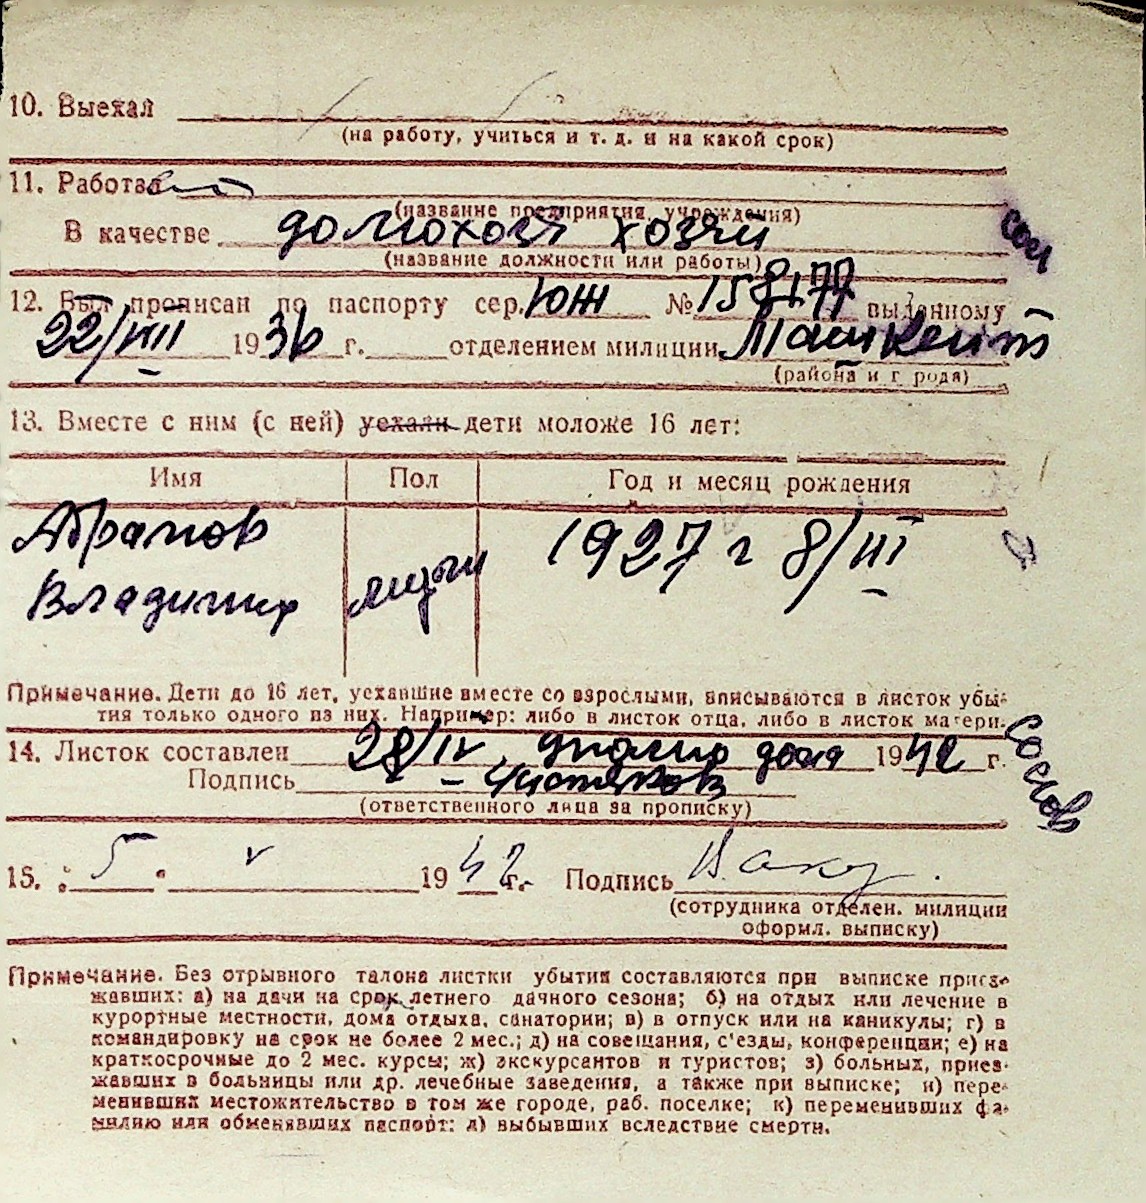 10. Выехал
(на работу, учиться и т. д. и на какой срок)
11. Работал
(название предприятия, учреждения)
В качестве домохозя хозяй
(название должности или работы)
12. Был прописан по паспорту сер. Юж № 158177 выданному
22/VIII 1936 г. отделением милиции Ташкент
(района и г рода)
13. Вместе с ним (с ней) уехали дети моложе 16 лет:
Имя Пол Год и месяц рождения
Абрамов
Владимир 1927 г 8/III
Примечание. Дети до 16 лет, уехавшие вместе со взрослыми, вписываются в листок убы-
тия только одного из них. Например: либо в листок отца, либо в листок матери.
14. Листок составлен 28/IV дома 1942 г.
Подпись Чистяков
(ответственного лица за прописку)
15. 5. V 1942 г. Подпись
(сотрудника отделен. милиции
оформл. выписку)
Примечание. Без отрывного талона листки убытия составляются при выписке приез-
жавших: а) на дачи на срок летнего дачного сезона; б) на отдых или лечение в
курортные местности, дома отдыха, санатории; в) в отпуск или на каникулы; г) в
командировку на срок не более 2 мес.; д) на совещания, с'езды, конференции; е) на
краткосрочные до 2 мес. курсы; ж) экскурсантов и туристов; з) больных, приез-
жавших в больницы или др. лечебные заведения, а также при выписке; и) пере-
менивших местожительство в том же городе, раб. поселке; к) переменивших фа-
милию или обменявших паспорт: л) выбывших вследствие смерти.